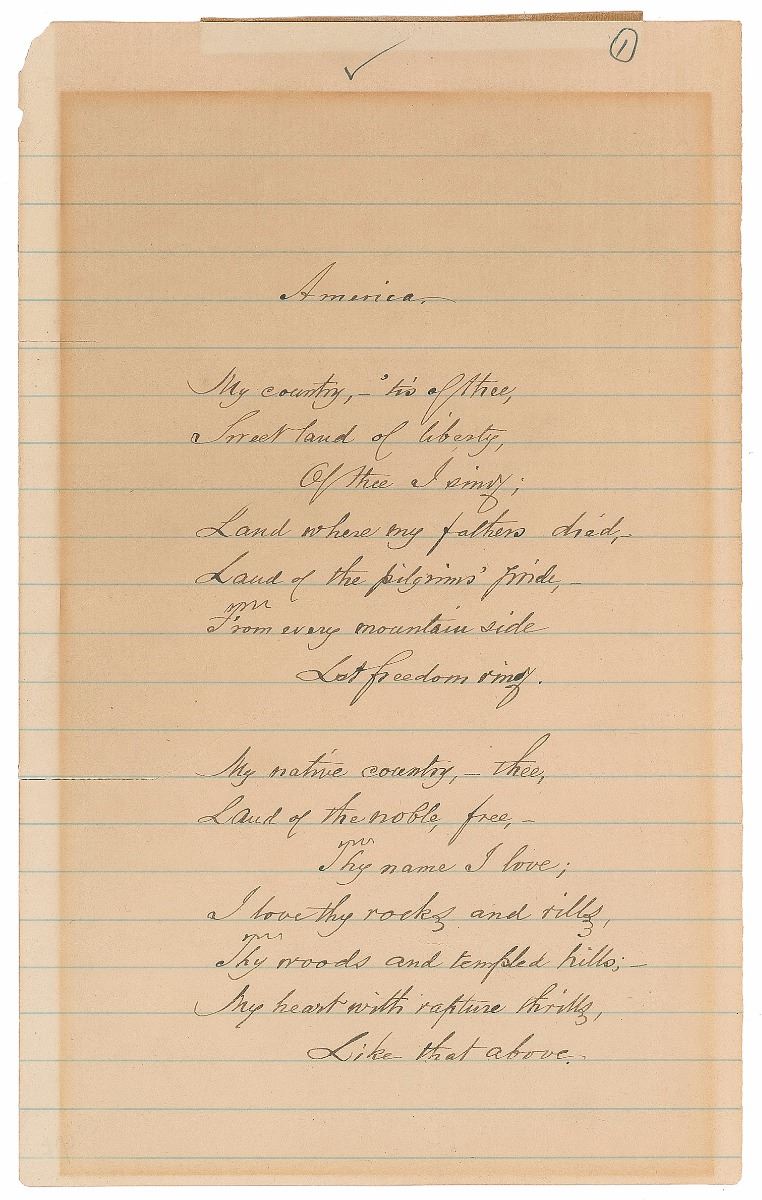 1
America.
My country, – 'tis of thee,
Sweet land of liberty,
Of thee I sing;
Land where my fathers died, –
Land of the pilgrims' pride, –
From every mountain side
Let freedom ring.
My native country, – thee,
Land of the noble, free, –
Thy name I love;
I love thy rocks and rills,
Thy woods and templed hills; –
My heart with rapture thrills,
Like that above.